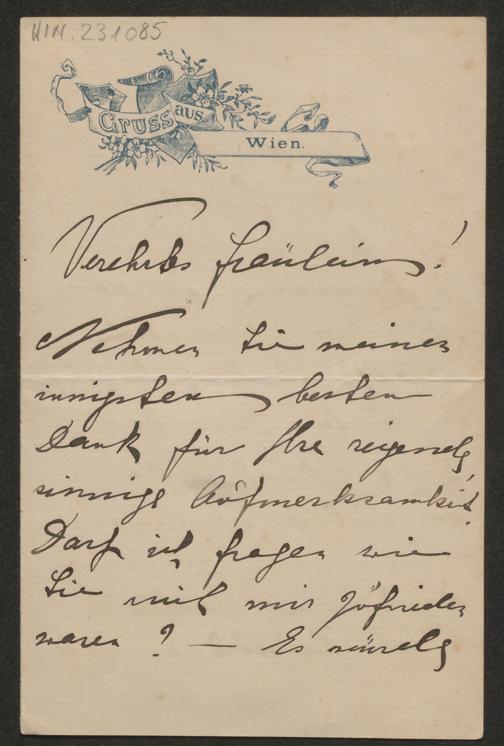 HIN. 231085
Gruss aus
Wien.
Verehrtes Fräulein!
Nehmen Sie meinen
innigsten besten
Dank für Ihre reizende,
sinnige Aufmerksamkeit.
Darf ich fragen wie
Sie mit mir zufrieden
waren? — Es würde